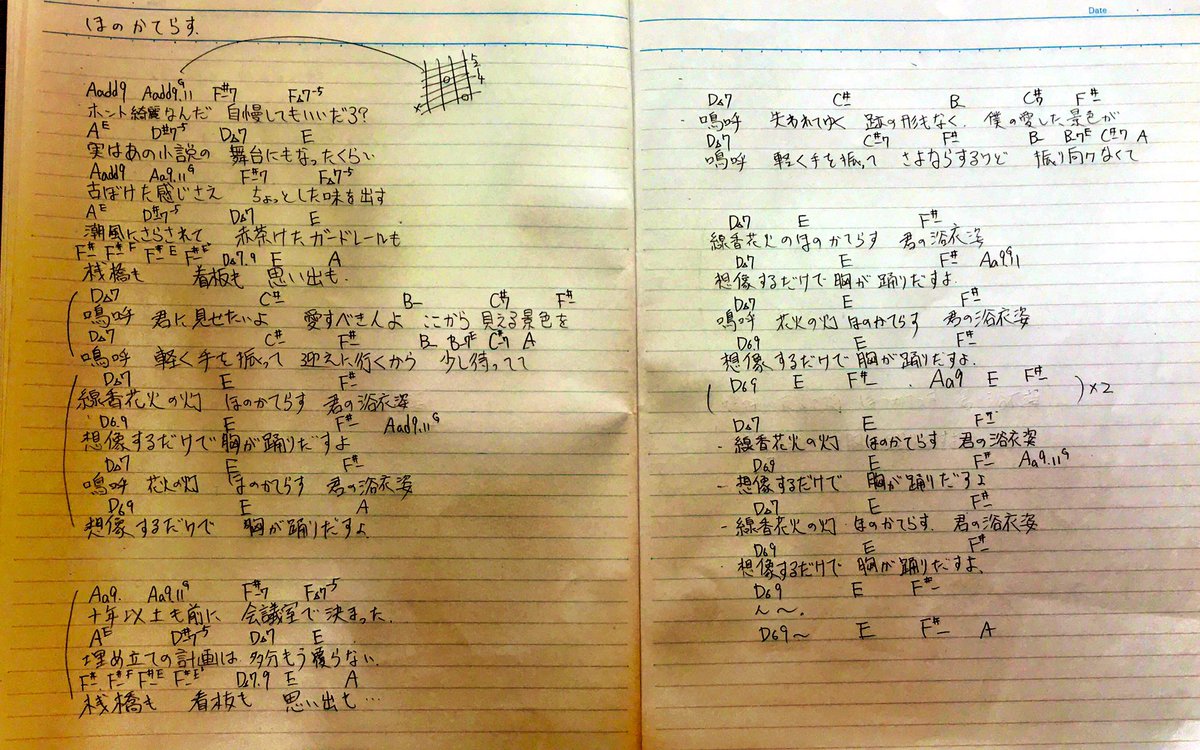 ほのかてらす
Aadd9 Aadd9.11G F#7 F△7-5
ホント綺麗なんだ 自慢してもいいだろ?
AE D#7-5 D△7 E
実はあの小説の 舞台にもなったくらい
Aadd9 Aa9.11G F#7 F△7-5
古ぼけた感じさえ ちょっとした味を出す
AE D#7-5 D△7 E
潮風にさらされて 赤茶けたガードレールも
F#- F#-F F#-E F#-E♭ D△7.9 E A
桟橋も 看板も 思い出も
D△7 C#- B- C#7 F#-
嗚呼 君に見せたいよ 愛すべき人よ ここから見える景色を
D△7 C#- F#- B- B-7E C#-7 A
嗚呼 軽く手を振って 迎えに行くから 少し待ってて
D△7 E F#-
線香花火の灯 ほのかてらす 君の浴衣姿
D6.9 E F#- Aad9.11G
想像するだけで胸が踊りだすよ
D△7 E F#-
嗚呼 花火の灯 ほのかてらす 君の浴衣姿
D69 E A
想像するだけで 胸が踊りだすよ
Aa9. Aa9.11G F#-7 F△7-5
十年以上も前に 会議室で決まった
AE D#7-5 D△7 E
埋め立ての計画は 多分もう覆らない
F#- F#-F F#-E F#-E♭ D△7.9 E A
桟橋も 看板も 思い出も…
Date
D△7 C#- B- C#7 F#-
嗚呼 失われてゆく 跡の形もなく 僕の愛した景色が
D△7 C#-7 F#- B- B-7E C#-7 A
嗚呼 軽く手を振って さよならするけど 振り向けなくて
D△7 E F#-
線香花火のほのかてらす 君の浴衣姿
D△7 E F#- Aa9.11
想像するだけで胸が踊りだすよ
D△7 E F#-
嗚呼 花火の灯 ほのかてらす 君の浴衣姿
D69 E F#-
想像するだけで胸が踊りだすよ
( D69 E F#- Aa9 E F#- )×2
D△7 E F#-
線香花火の灯 ほのかてらす 君の浴衣姿
D69 E F#- Aa9.11G
想像するだけで 胸が踊りだすよ
D△7 E F#-
線香花火の灯 ほのかてらす 君の浴衣姿
D69 E F#-
想像するだけで 胸が踊りだすよ
D69 E F#-
ん〜
D69〜 E F#- A